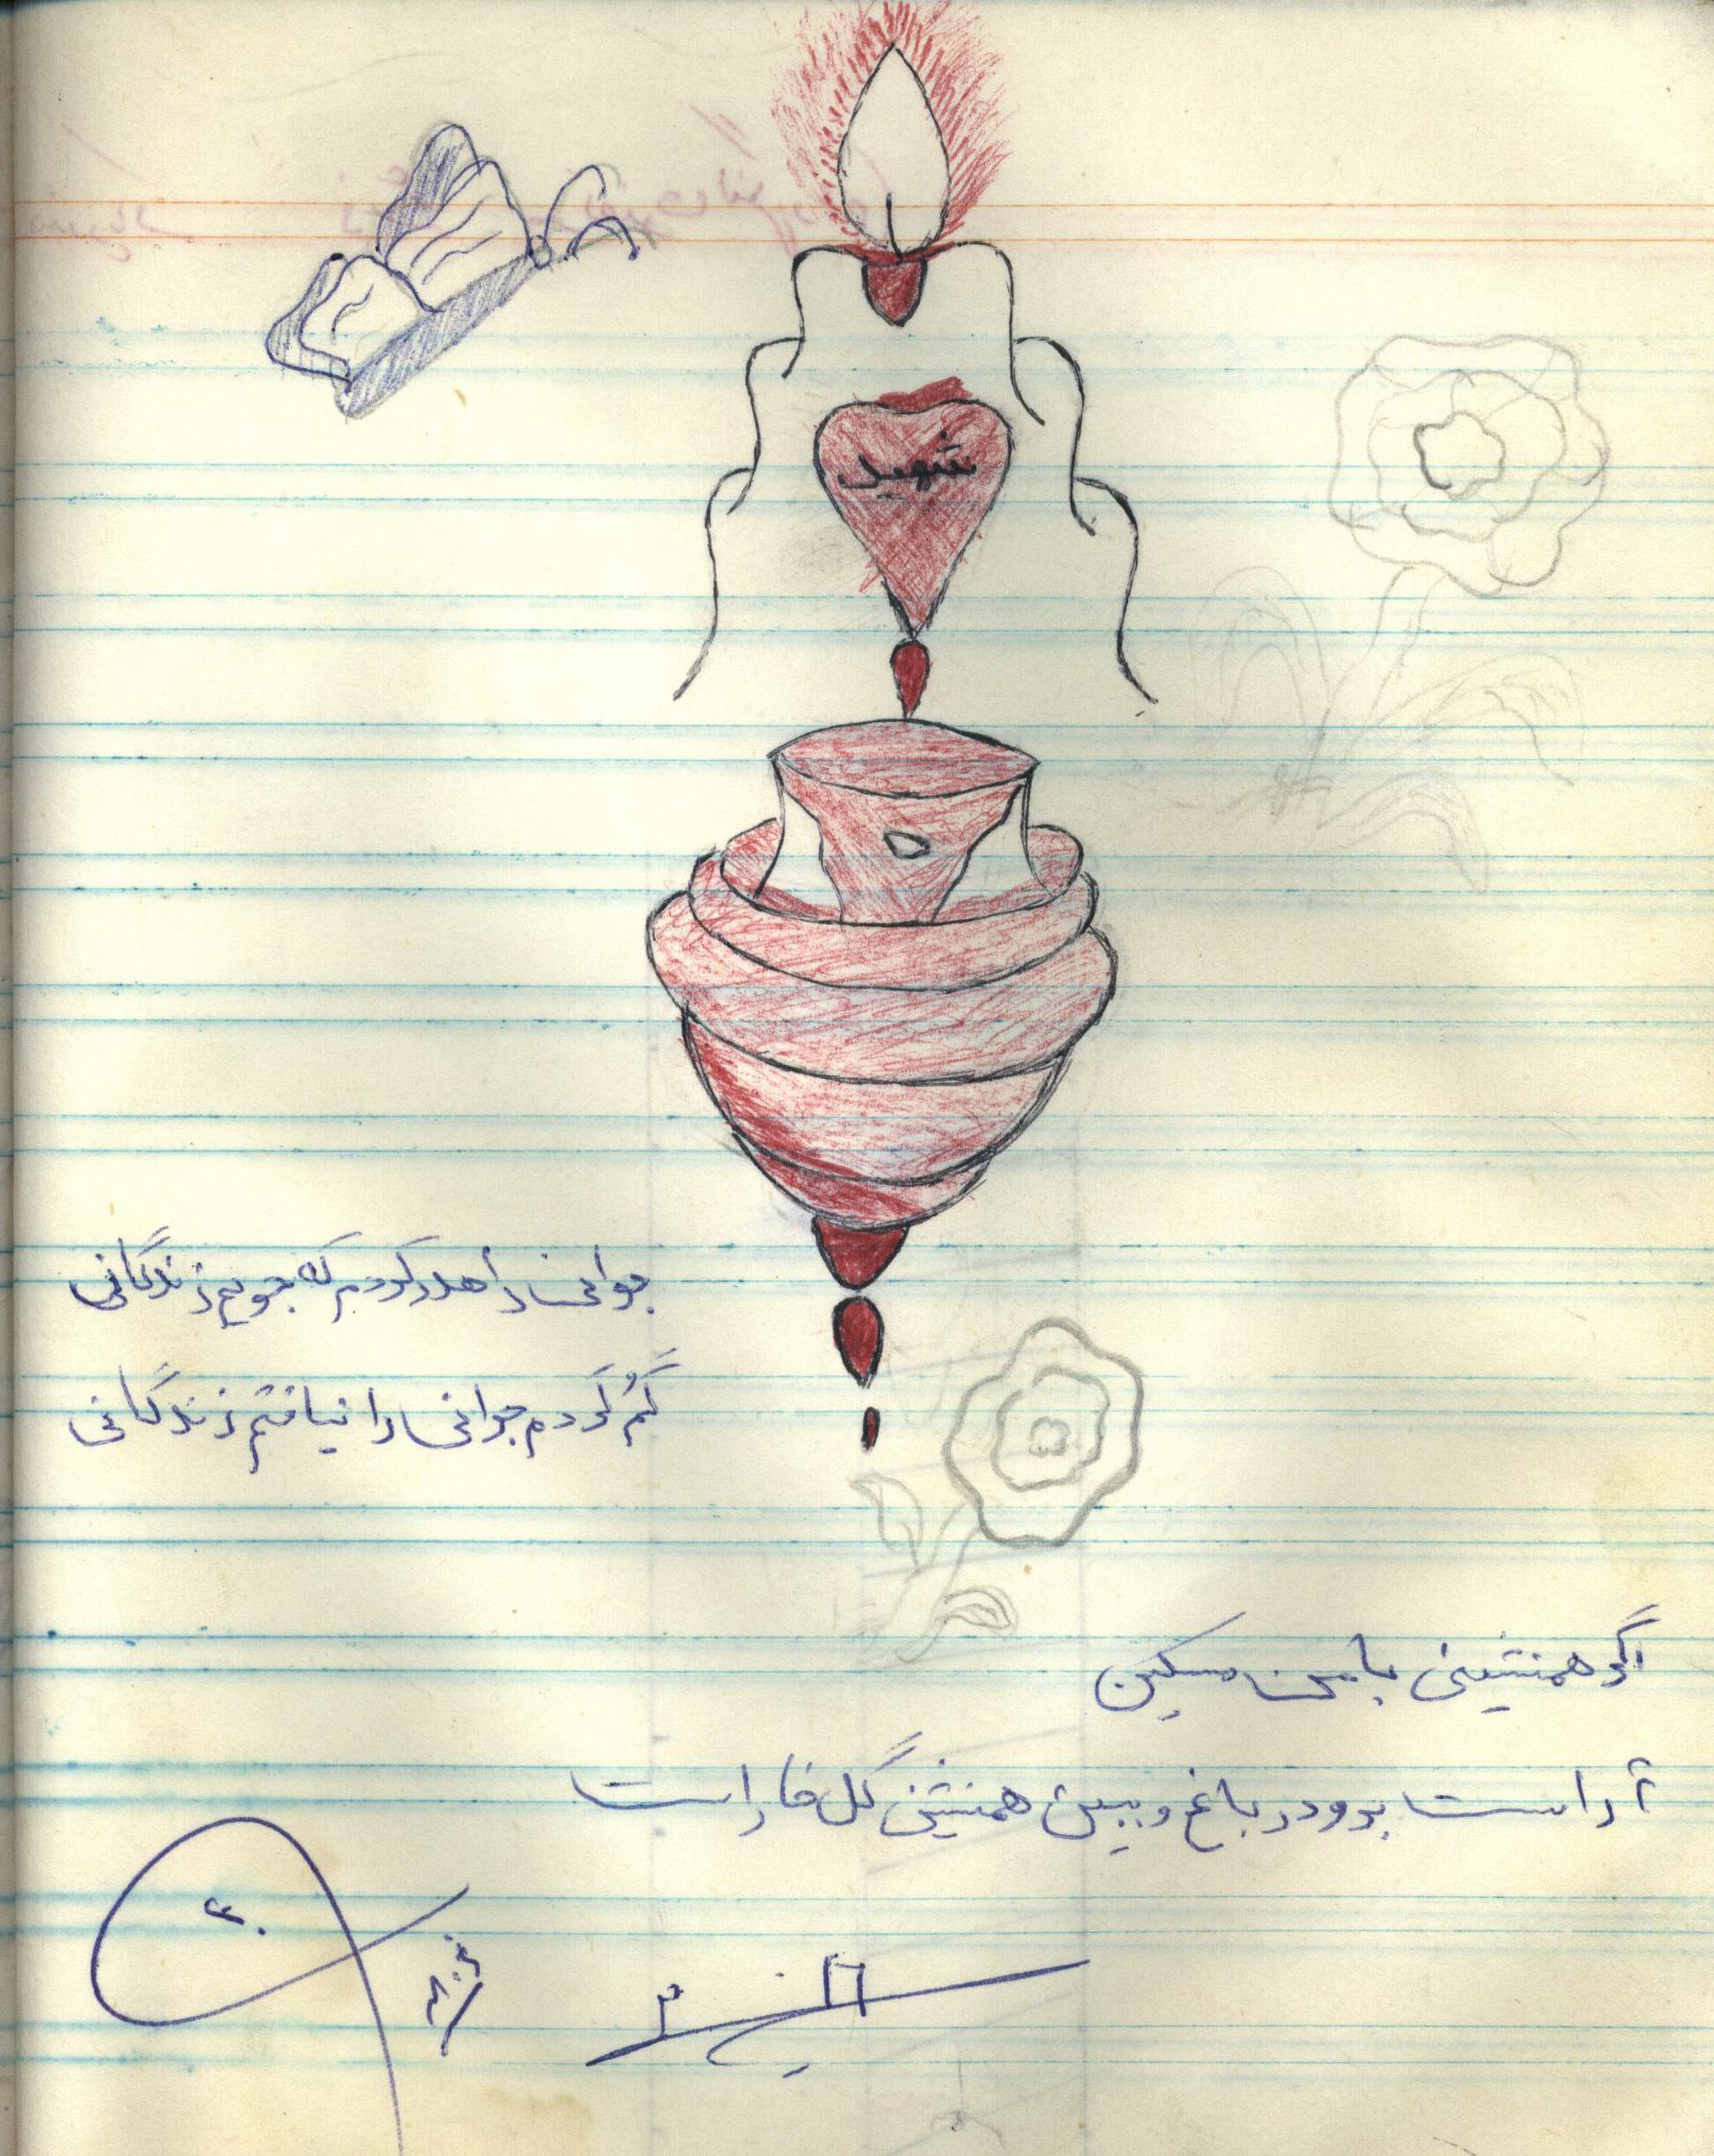 شهید
جوانی را هدر کردم که جویم زندگانی
گم کردم جوانی را نیافتم زندگانی
اگر همنشینی با من مسکین
آر است برو در باغ و ببین همنشین گل خار است